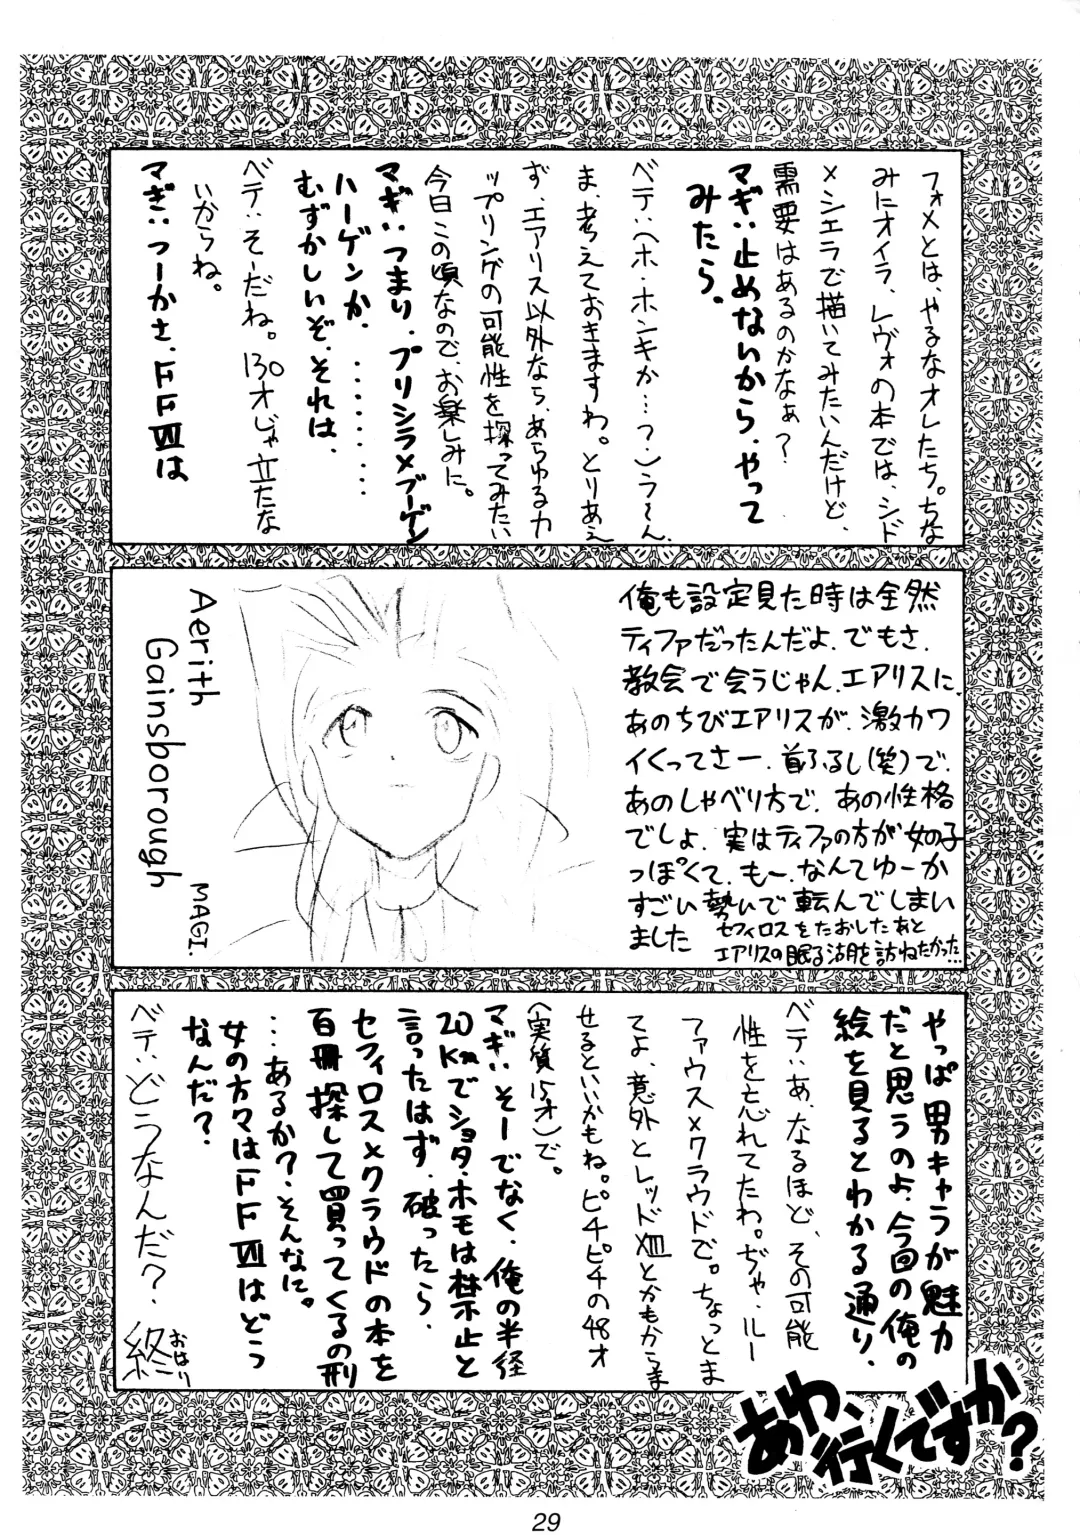 フォメとは、やるなオレたち。ちな
みにオイラ、レヴォの本では、シド
×シエラで描いてみたいんだけど、
需要はあるのかなぁ?
マギ‥止めないから、やって
みたら。
ベテ‥(ホ・ホンキか…?)う〜ん、
ま、考えておきますわ。とりあえ
ず、エアリス以外なら、あらゆるカ
ップリングの可能性を探ってみたい
今日この頃なので、お楽しみに。
マギ‥つまり、プリシラ×ブーゲン
ハーゲンか、‥‥‥‥‥‥
むずかしいぞ、それは、
ベテ‥そーだね。130才じゃ立たな
いからね。
マギ‥つーかさ、FFⅦは
俺も設定見た時は全然
ティファだったんだよ、でもさ、
教会で会うじゃん、エアリスに、
あのちびエアリスが、激カワ
イくってさー、首ふるし(笑)で、
あのしゃべり方で、あの性格
でしょ、実はティファの方が女の子
っぽくて、もー、なんてゆーか
すごい勢いで転んでしまい
ました セフィロスをたおしたあと
エアリスの眠る湖を訪ねたかった…
Aerith
Gainsborough
MAGI.
やっぱ男キャラが魅力
だと思うのよ、今回の俺の
絵を見るとわかる通り、
ベテ‥あ、なるほど、その可能
性を忘れてたわ。ぢゃ・ルー
ファウス×クラウドで。ちょっとま
てよ、意外とレッドⅩⅢとかもからま
せるといいかもね。ピチピチの48才
(実質15才)で。
マギ‥そーでなく、俺の半径
20kmでショタ・ホモは禁止と
言ったはず、破ったら
セフィロス×クラウドの本を
百冊探して買ってくるの刑
…あるか?・そんなに。
女の方々はFFⅦはどう
なんだ?
ベテ‥どうなんだ?
終
おはり
あわ、行くですか?
29